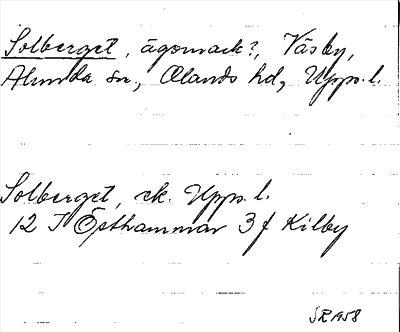 Solberget, ägomark?, Väsby,
Alunda sn, Olands hd, Upps. l.
Solberget, ek. Upps. l.
12 I Östhammar 3f Kilby
SR 1958